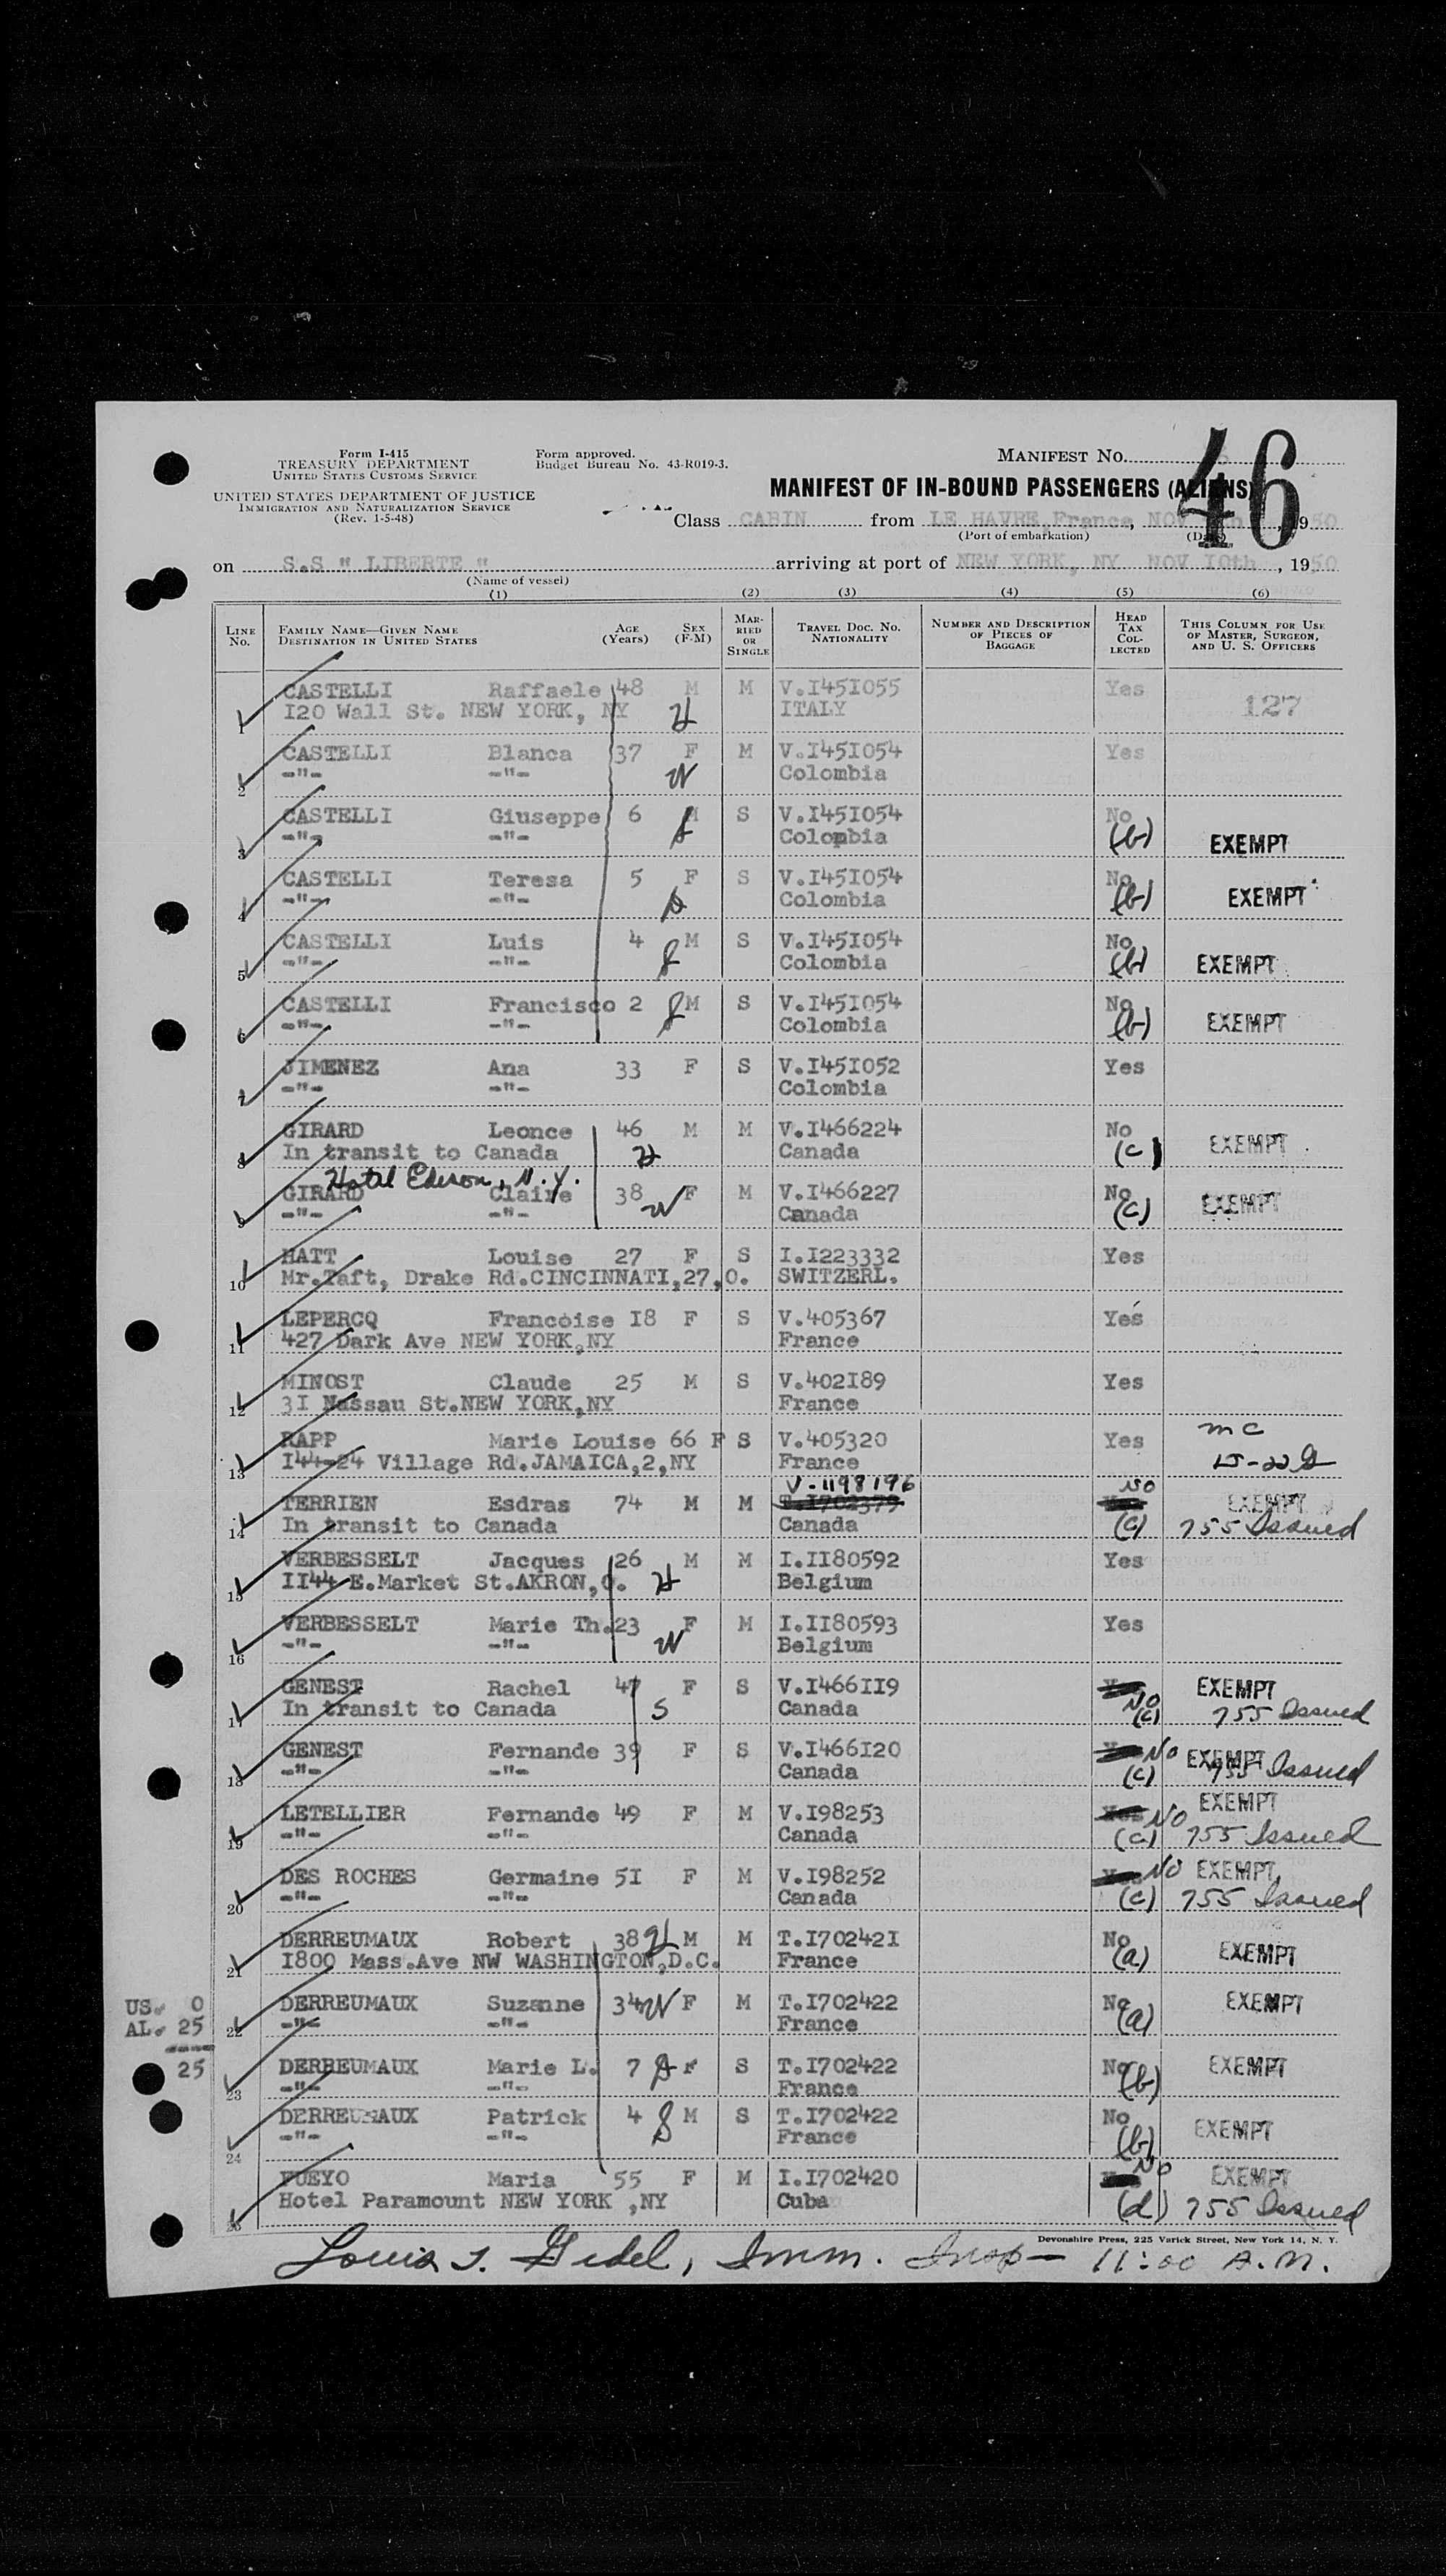 Form I-415
TREASURY DEPARTMENT
UNITED STATES CUSTOMS SERVICE
UNITED STATES DEPARTMENT OF JUSTICE
IMMIGRATION AND NATURALIZATION SERVICE
(Rev. 1-5-48)
Form approved.
Budget Bureau No. 43-R019-3.
MANIFEST No.
46
MANIFEST OF IN-BOUND PASSENGERS (ALIENS)
Class CABIN from LE HAVRE,France, NOV , 1950
(Port of embarkation) (Date)
on S.S " LIBERTE " arriving at port of NEW YORK, NY NOV 10th , 1950
(Name of vessel)
(1) (2) (3) (4) (5) (6)
LINE No. FAMILY NAME—GIVEN NAME DESTINATION IN UNITED STATES AGE (Years) SEX (F-M) MARRIED OR SINGLE TRAVEL DOC. NO. NATIONALITY NUMBER AND DESCRIPTION OF PIECES OF BAGGAGE HEAD TAX COLLECTED THIS COLUMN FOR USE OF MASTER, SURGEON, AND U. S. OFFICERS
CASTELLI Raffaele 48 M M V.I451055 Yes
1 120 Wall St. NEW YORK, NY H ITALY 127
CASTELLI Blanca 37 F M V.I451054 Yes
2 -"- -"- W Colombia
CASTELLI Giuseppe 6 M S V.I451054 No
3 -"- -"- Colombia (b) EXEMPT
CASTELLI Teresa 5 F S V.I451054 No
4 -"- -"- Colombia (b) EXEMPT
CASTELLI Luis 4 M S V.I451054 No
5 -"- -"- Colombia (b) EXEMPT
CASTELLI Francisco 2 M S V.I451054 No
6 -"- -"- Colombia (b) EXEMPT
JIMENEZ Ana 33 F S V.I451052 Yes
7 -"- -"- Colombia
GIRARD Leonce 46 M M V.I466224 No
8 In transit to Canada H Canada (c) EXEMPT
Hotel Edison, N.Y.
GIRARD Claire 38 W F M V.I466227 No
9 -"- -"- Canada (c) EXEMPT
HATT Louise 27 F S I.I223332 Yes
10 Mr.Taft, Drake Rd.CINCINNATI,27,O. SWITZERL.
LEPERCQ Francoise I8 F S V.405367 Yes
11 427 Dark Ave NEW YORK,NY France
MINOST Claude 25 M S V.402I89 Yes
12 3I Nassau St.NEW YORK,NY France
RAPP Marie Louise 66 F S V.405320 Yes mc
13 I44-24 Village Rd.JAMAICA,2,NY France
V-1198196 NO
TERRIEN Esdras 74 M M T.I702379 EXEMPT
14 In transit to Canada Canada (c) 755 Issued
VERBESSELT Jacques 26 M M I.II80592 Yes
15 II44 E.Market St.AKRON,O. H Belgium
VERBESSELT Marie Th. 23 F M I.II80593 Yes
16 -"- -"- W Belgium
GENEST Rachel 47 F S V.I466II9 EXEMPT
17 In transit to Canada S Canada NO (c) 755 Issued
GENEST Fernande 39 F S V.I466I20 No EXEMPT
18 -"- -"- Canada (c) 755 Issued
LETELLIER Fernande 49 F M V.I98253 Yes NO EXEMPT
19 -"- -"- Canada (c) 755 Issued
DES ROCHES Germaine 5I F M V.I98252 NO EXEMPT
20 -"- -"- Canada (c) 755 Issued
DERREUMAUX Robert 38 H M M T.I70242I No
21 I800 Mass.Ave NW WASHINGTON,D.C. France (a) EXEMPT
US. 0
DERREUMAUX Suzanne 34 W F M T.I702422 No EXEMPT
AL. 25
22 -"- -"- France (a)
25
DERREUMAUX Marie L. 7 F S T.I702422 No EXEMPT
23 -"- -"- France (b)
DERREUMAUX Patrick 4 M S T.I702422 No
24 -"- -"- France (b) EXEMPT
FUEYO Maria 55 F M I.I702420 NO EXEMPT
25 Hotel Paramount NEW YORK ,NY Cuba (d) 755 Issued
Devonshire Press, 225 Varick Street, New York 14, N. Y.
Louis T. Gidel, Imm. Insp— 11:00 A.M.